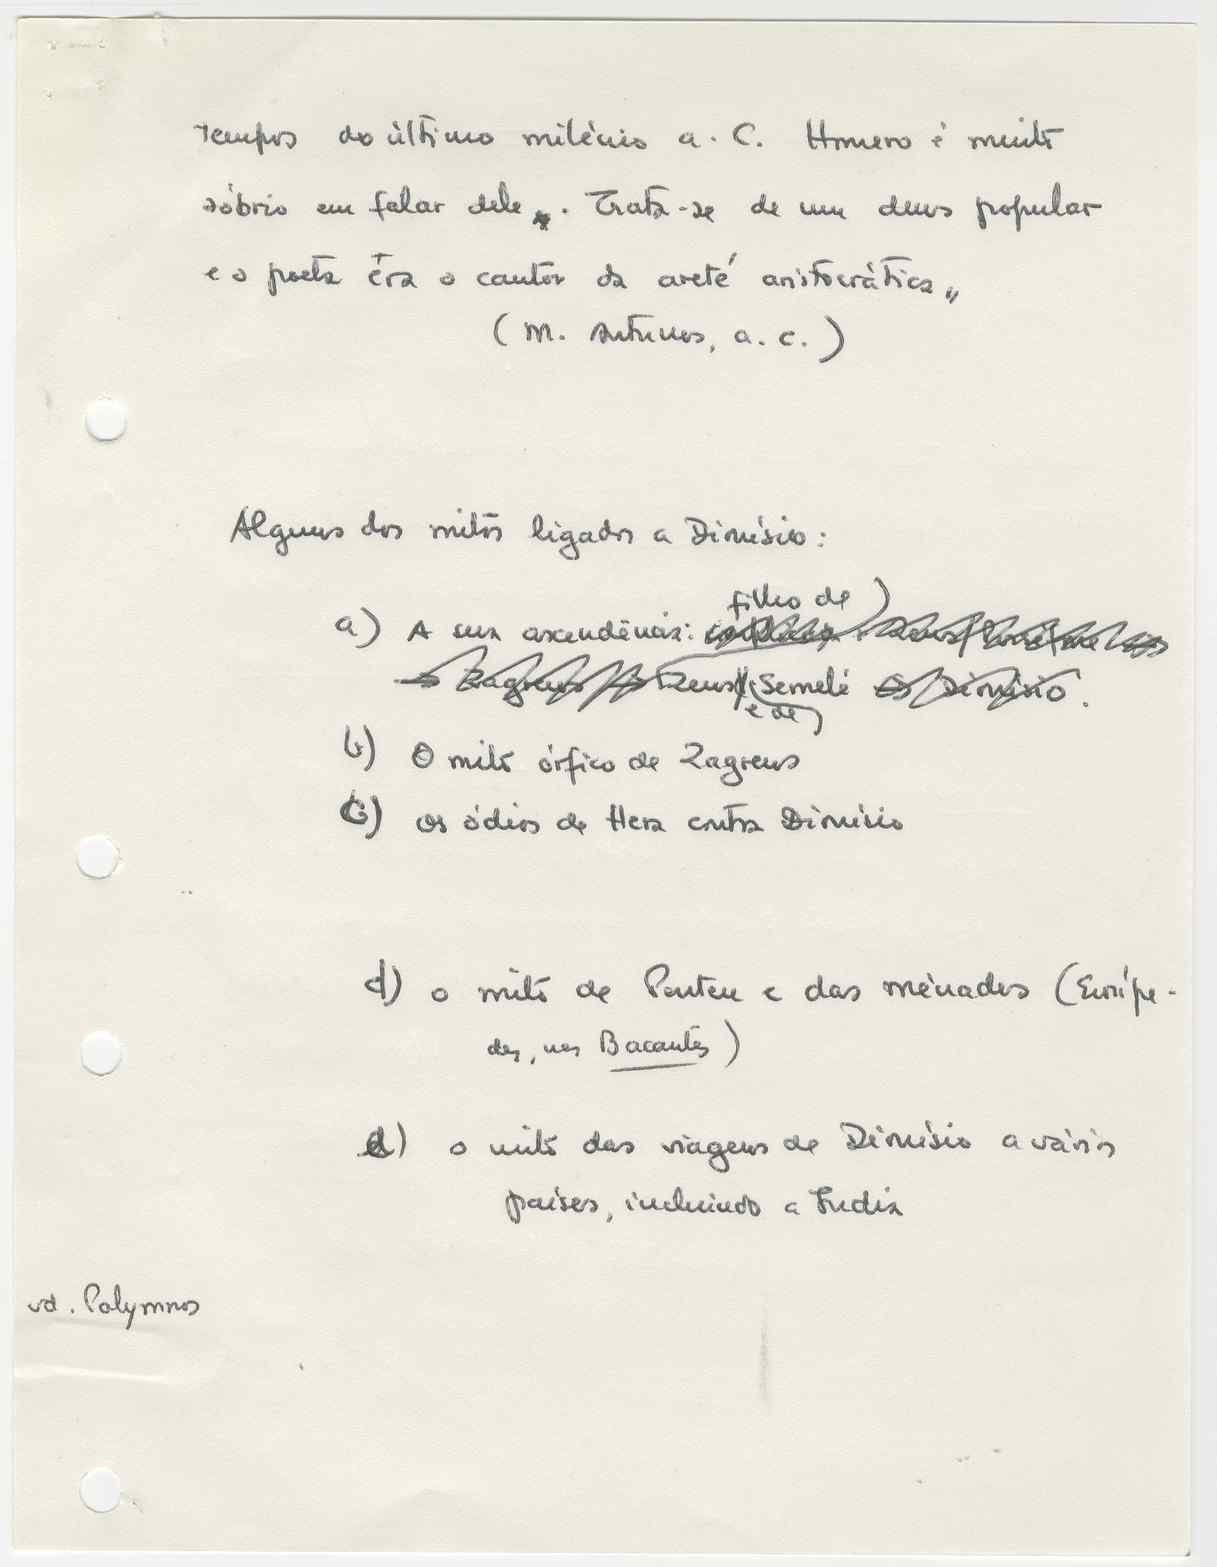 tempos do último milénio a. C. Homero é muito
sóbrio em falar dele. Trata-se de um deus popular
e o poeta era o cantor da areté aristocrática„
(M. Antunes, a. c.)
Alguns dos mitos ligados a Dionísio:
filho de
a) A sua ascendência:
Zagreus Zeus Semele Dionísio.
e de
b) O mito órfico de Zagreus
c) os ódios de Hera contra Dionísio
d) o mito de Penteu e das ménades (Eurípe-
des, nas Bacantes)
e) o mito das viagens de Dionísio a vários
países, incluindo a Índia
vd. Polymnos